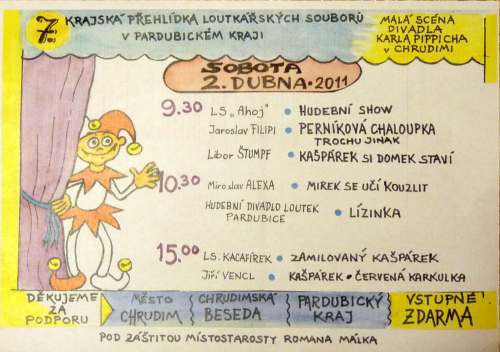 7. KRAJSKÁ PŘEHLÍDKA LOUTKÁŘSKÝCH SOUBORŮ
V PARDUBICKÉM KRAJI
MALÁ SCÉNA
DIVADLA
KARLA PIPPICHA
V CHRUDIMI
SOBOTA
2. DUBNA • 2011
9.30 LS „Ahoj" • HUDEBNÍ SHOW
Jaroslav FILIPI • PERNÍKOVÁ CHALOUPKA
TROCHU JINAK
Libor ŠTUMPF • KAŠPÁREK SI DOMEK STAVÍ
10.30 Miroslav ALEXA • MIREK SE UČÍ KOUZLIT
HUDEBNÍ DIVADLO LOUTEK
PARDUBICE • LÍZINKA
15.00 LS. KACAFÍREK • ZAMILOVANÝ KAŠPÁREK
JIŘÍ VENCL • KAŠPÁREK • ČERVENÁ KARKULKA
DĚKUJEME
ZA
PODPORU
MĚSTO
CHRUDIM
CHRUDIMSKÁ
BESEDA
PARDUBICKÝ
KRAJ
VSTUPNÉ
ZDARMA
POD ZÁŠTITOU MÍSTOSTAROSTY ROMANA MÁLKA